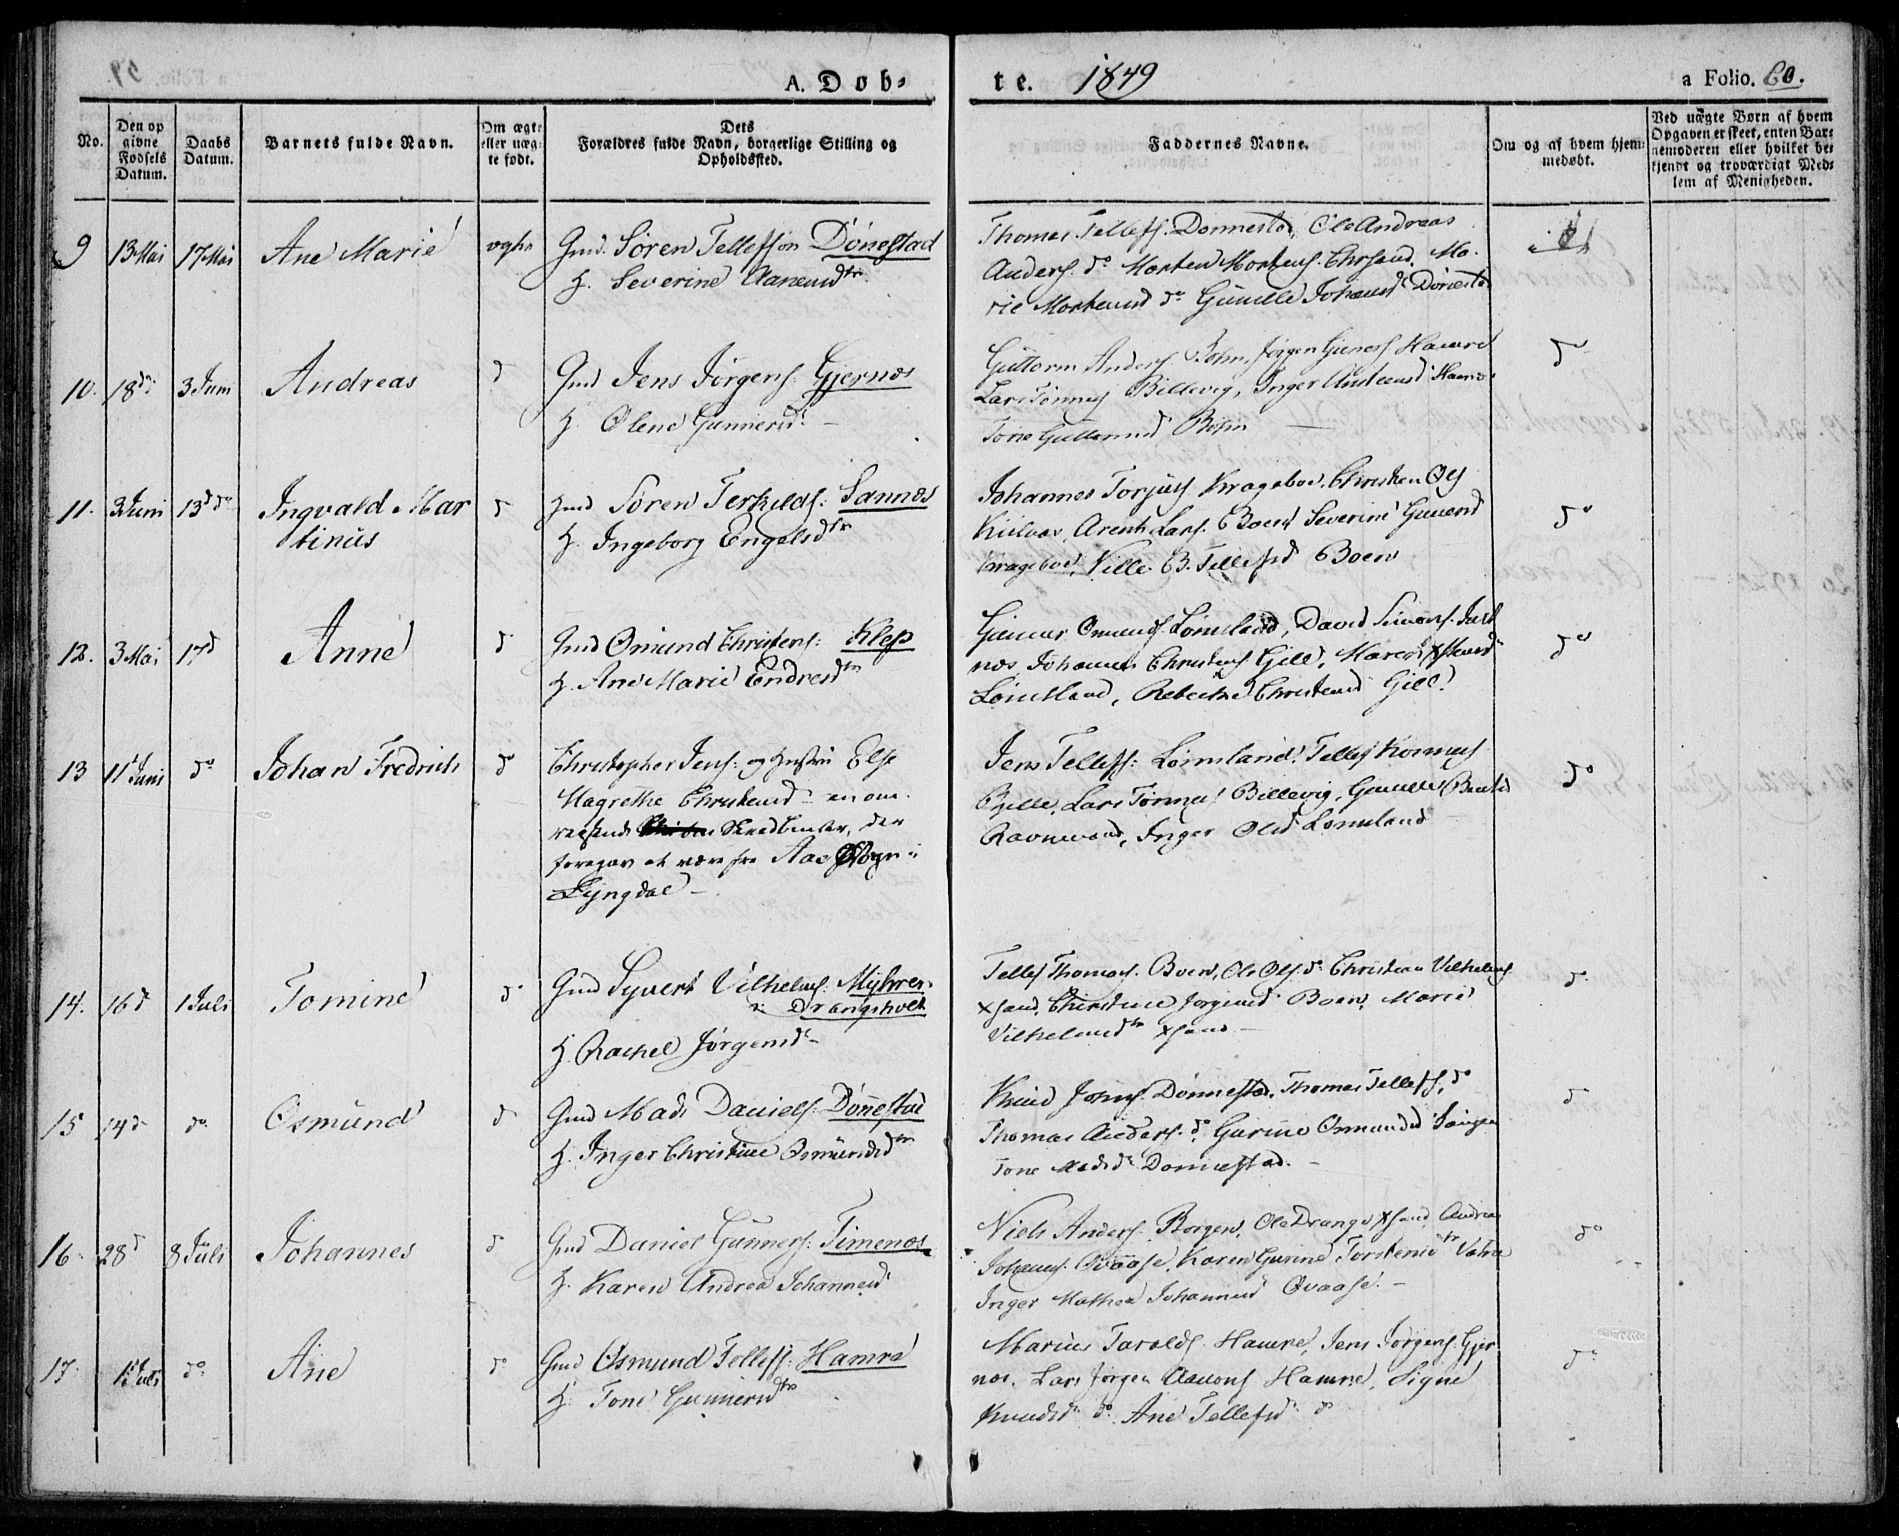 A. Døb-
te. 1849
a Folio. 60.
No.
Den op
givne
Fødsels
Datum.
Daabs
Datum.
Barnets fulde Navn.
Om ægte
eller uæg-
te født.
Dets
Forældres fulde Navn, borgerlige Stilling og
Opholdssted.
Faddernes Navne.
Om og af hvem hjem-
medøbt.
Ved uægte Børn af hvem
Opgaven er skeet, enten Bar-
nemoderen eller hvilket be-
kjendt og troværdigt Med-
lem af Menigheden.
9 13 Mai 17 Mai Ane Marie ægte
Gmd. Søren Tellefson Dönestad
H. Severine Aanensdtr
Thomas Tellefs. Donnestad, Ole Andreas
Anders. do Morten Mortens. Chrsand. Ma-
rie Mortensd do Gunille Johansd Dönestad
10. 18do 3 Juni Andreas do
Gmd Jens Jörgens. Gjernæs
H. Olene Gunnersd. –
Guttorm Anders Bohn, Jörgen Guners Hamre
Lars Tönnes Billevig, Inger
Tone Guttormsd Bohn –
do
11. 3 Juni 13d do Ingvald Mar
tinus do
Gmd Sören Terkilds: Sannæs
H. Ingeborg Engelsdtr
Johannes Torjus Krageboe. Christen Ols
Arent Lars. Boen Severine Gunersd
Krageboe, Nille B. Tellefsd Boen
do
12. 3 Mai 17d Anne do
Gmd Omund Christens: Klep
H. Ane Marie Endresdtr
Gunnar Omunds Lömsland, David Simons. Just
næs Johannes Christens Gill, Maren
Lömsland, Rebekka Christensd Gill.
do
13 11 Juni do Johan Fredrich do
Christopher Jens: og Hustru Else
Magrethe Christensd – en om-
reisende Skredbinder, der
foregav at være fra Aas Sogn i
Lyngdal –
Jens Tellefs: Lömsland. Tellef
Lars Tönnes Billevig, Gunille Bentsd
Ravnevand, Inger Olsd Lömsland
do
14. 16d 1 Juli Tomine do
Gmd Syvert Vilhelms. Myhren
i Drangsholt
H. Rachel Jörgensd –
Tellef Thomas. Boen, Ole Ols do Christian Vilhelms
Xsand, Christine Jörgensd Boen, Marie
Vilhelmsdtr Xsand –
do
15 14d do Osmund do
Gmd Mads Daniels. Dönnestad
H. Inger Christine Osmundsdtr
Knud Johns. Dönnestad, Thomas Tellefs. do
Thomas Anders. do. Gurine Osmundsd
Tone Madsd Donnestad. –
do
16. 28d 8 Juli Johannes do
Gmd Daniel Gunners: Timenæs
H. Karen Andrea Johannesd
Niels Anders. Borgen, Ole Drange Xsand, Andreas
Johans. Qvaase, Karen Gurine Torstensdtr Vatne
Inger Mathea Johannesd Qvaase. –
do
17. 1 Juli do Ane do
Gmd Osmund Tellefs: Hamre
H. Tone Gunnersdtr
Marius Taralds Hamre, Jens Jörgens. Gjer
næs. Lars Jörgen Aanons Hamre, Signe
Knudsd do. Ane Tellefsd do
do